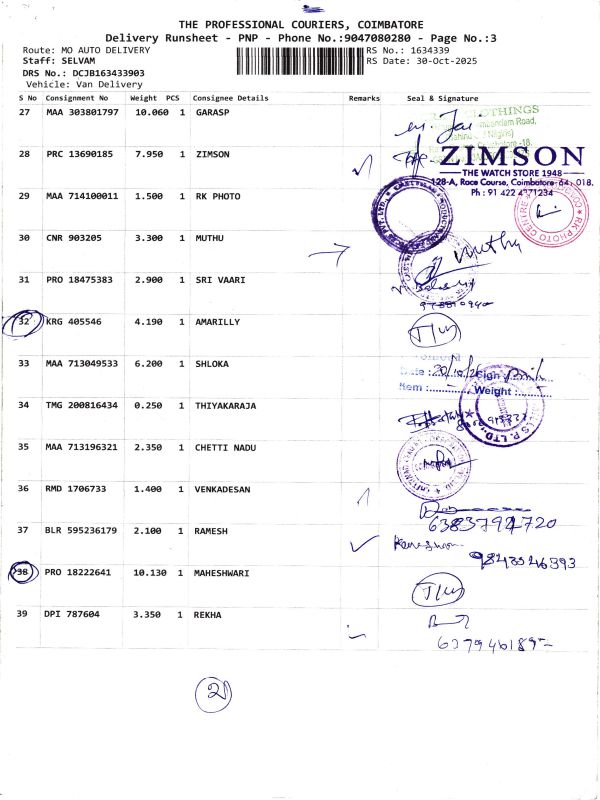 THE PROFESSIONAL COURIERS, COIMBATORE
Delivery Runsheet - PNP - Phone No.:9047080280 - Page No.:3
Route: MO AUTO DELIVERY RS No.: 1634339
Staff: SELVAM RS Date: 30-Oct-2025
DRS No.: DCJB163433903
Vehicle: Van Delivery
S No Consignment No Weight PCS Consignee Details Remarks Seal & Signature
27 MAA 303801797 10.060 1 GARASP
CLOTHINGS
Road,
28 PRC 13690185 7.950 1 ZIMSON
ZIMSON
THE WATCH STORE 1948
128-A, Race Course, Coimbatore-641 018.
Ph : 91 422 4371234
29 MAA 714100011 1.500 1 RK PHOTO
RK PHOTO CENTRE
30 CNR 903205 3.300 1 MUTHU
Muthu
31 PRO 18475383 2.900 1 SRI VAARI
32 KRG 405546 4.190 1 AMARILLY
33 MAA 713049533 6.200 1 SHLOKA
Date : Sign
Item : Weight :
34 TMG 200816434 0.250 1 THIYAKARAJA
35 MAA 713196321 2.350 1 CHETTI NADU
36 RMD 1706733 1.400 1 VENKADESAN
6383794720
37 BLR 595236179 2.100 1 RAMESH
9843546393
38 PRO 18222641 10.130 1 MAHESHWARI
39 DPI 787604 3.350 1 REKHA
2